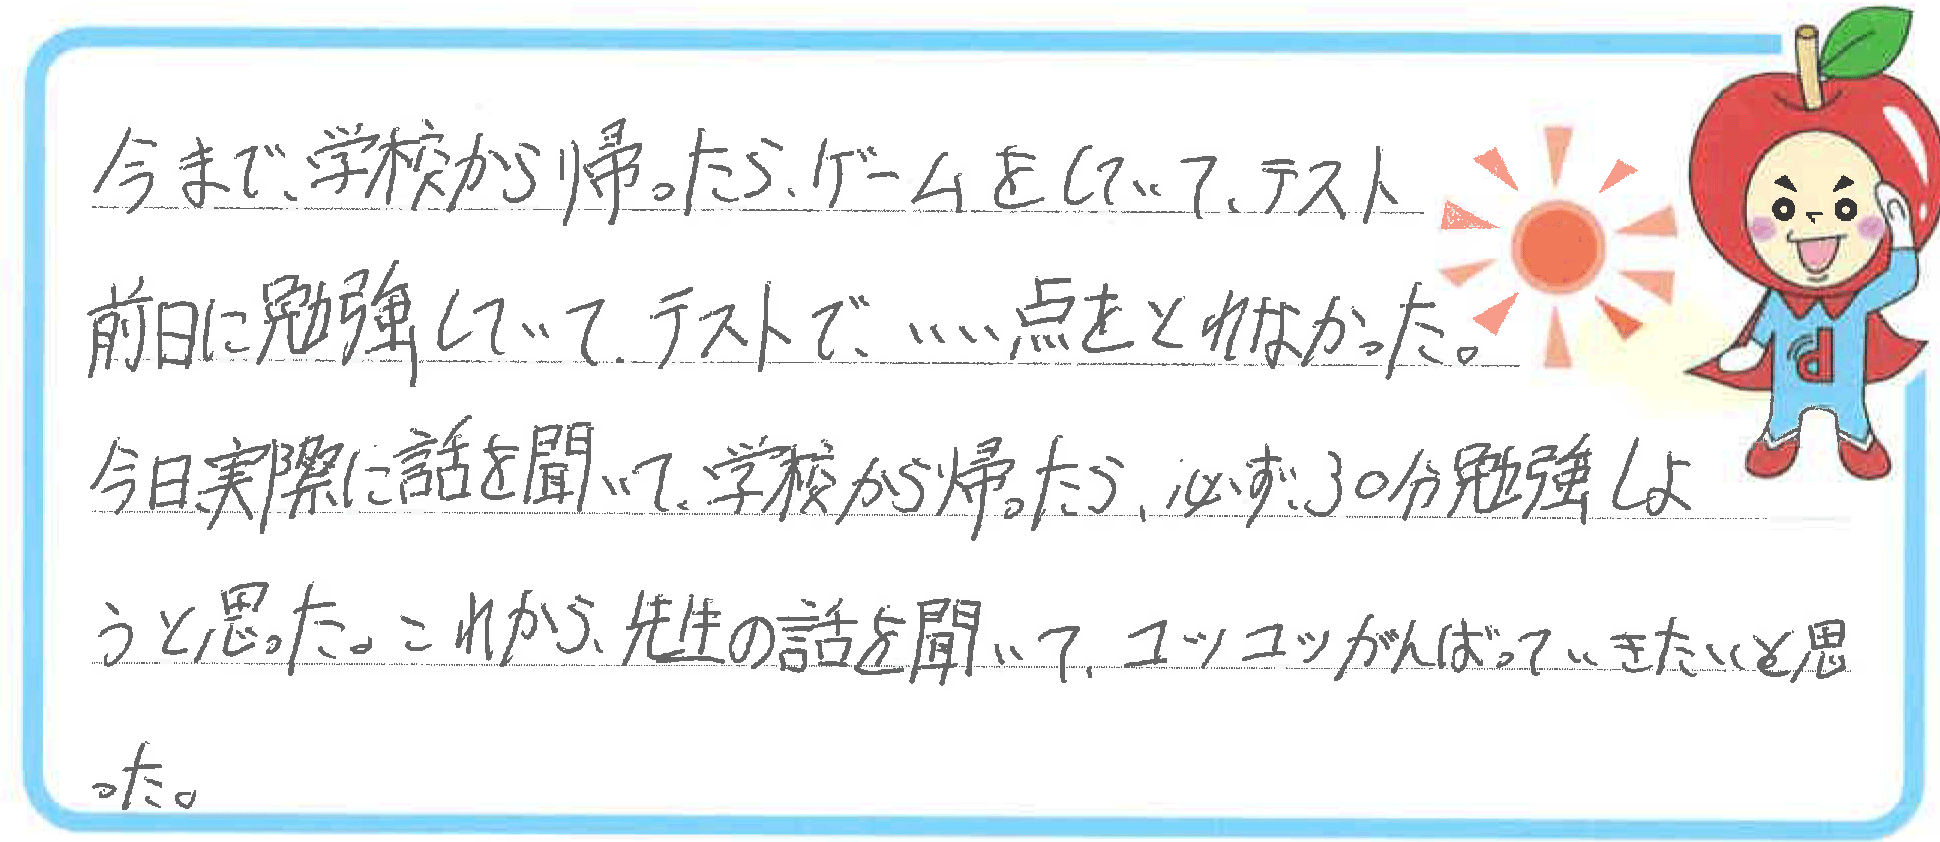 今まで、学校から帰ったら、ゲームをしていて、テスト
前日に勉強していて、テストで、いい点をとれなかった。
今日、実際に話を聞いて、学校から帰ったら、必ず、30分勉強しよ
うと思った。これから、先生の話を聞いて、コツコツがんばっていきたいと思
った。